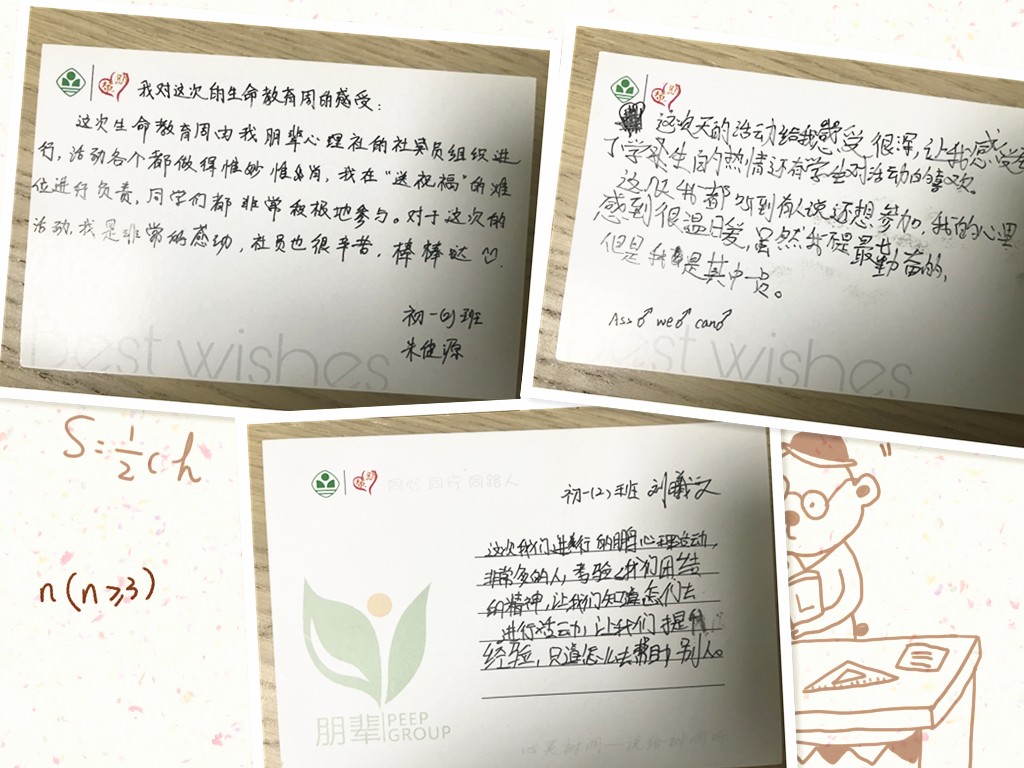 我对这次的生命教育周的感受：
这次生命教育周由我朋辈心理社的社员组织进
行，活动各个都做得惟妙惟肖，我在“送祝福”的难
位进行负责，同学们都非常积极地参与。对于这次的
活动，我是非常的感动，社员也很辛苦，棒棒哒♡.
初一(6)班
朱健源
Best wishes
这次天的活动给我感受很深，让我感受到
了学发生的热情还有学生对活动的喜欢。
这次我都听到有人说还想参加，我的心里
感到很温日爱，虽然我不是最勤奋的，
但是我是其中一员。
Ass♂ we♂ can♂
Best wishes
S=1/2ch
n(n≥3)
同心 同行 同路人
初一(2)班 刘曦文
这次我们进行的朋心理运动，
非常多的人，考验了我们团结
的精神，让我们知道怎么去
进行活动，让我们提升
经验，只道怎么去帮助别人。
朋辈 PEEP
GROUP